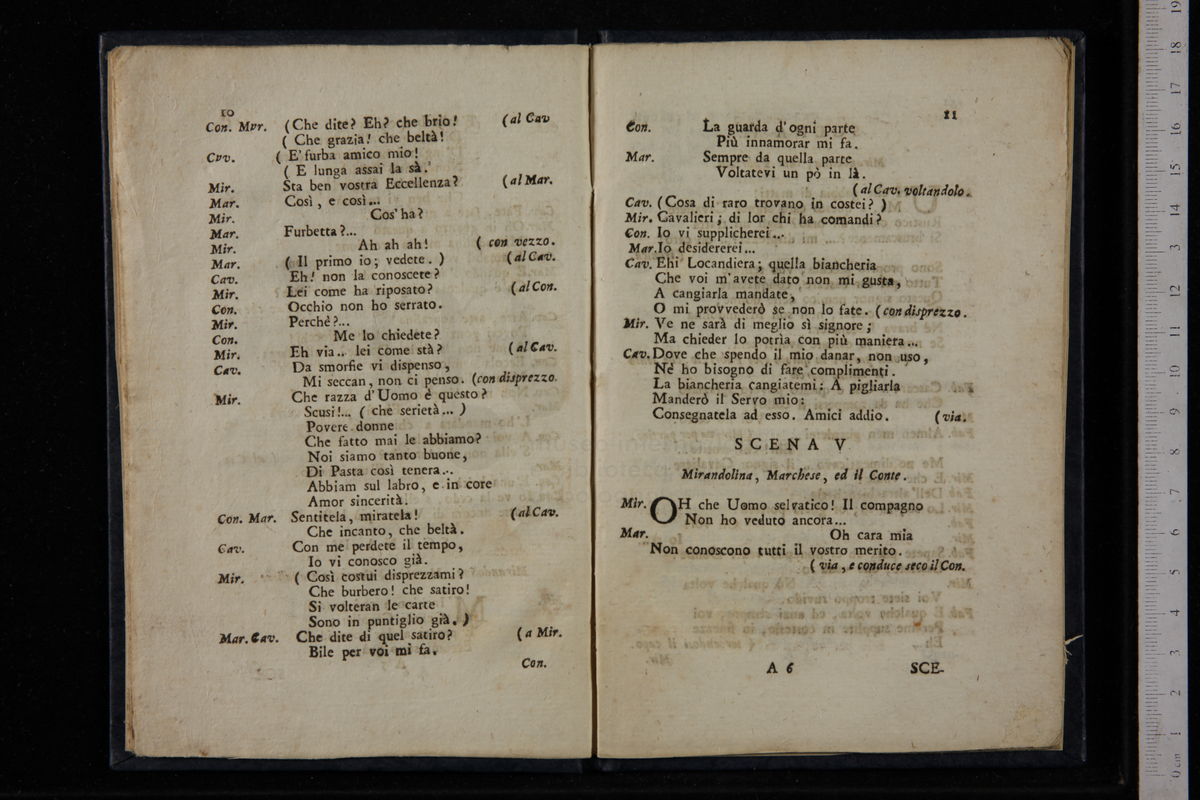 10
Con. Mvr. (Che dite? Eh? che brio! (al Cav
( Che grazia! che beltà!
Cvv. ( E' furba amico mio!
( E lunga assai la sà.
Mir. Sta ben vostra Eccellenza? (al Mar.
Mar. Così, e così...
Mir. Cos' ha?
Mar. Furbetta?...
Mir. Ah ah ah! ( con vezzo.
Mar. ( Il primo io; vedete. ) (al Cav.
Cav. Eh! non la conoscete?
Mir. Lei come ha riposato? (al Con.
Con. Occhio non ho serrato.
Mir. Perchè?...
Con. Me lo chiedete?
Mir. Eh via.. lei come stà? (al Cav.
Cav. Da smorfie vi dispenso,
Mi seccan, non ci penso. (con disprezzo.
Mir. Che razza d'Uomo è questo?
Scusi!... ( che serietà... )
Povere donne
Che fatto mai le abbiamo?
Noi siamo tanto buone,
Di Pasta così tenera...
Abbiam sul labro, e in core
Amor sincerità.
Con. Mar. Sentitela, miratela! (al Cav.
Che incanto, che beltà.
Cav. Con me perdete il tempo,
Io vi conosco già.
Mir. ( Così costui disprezzami?
Che burbero! che satiro!
Si volteran le carte
Sono in puntiglio già. )
Mar. Cav. Che dite di quel satiro? (a Mir.
Bile per voi mi fa.
Con.
11
Con. La guarda d'ogni parte
Più innamorar mi fa.
Mar. Sempre da quella parte
Voltatevi un pò in là.
(al Cav. voltandolo.
Cav. (Cosa di raro trovano in costei? )
Mir. Cavalieri; di lor chi ha comandi?
Con. Io vi supplicherei...
Mar. Io desidererei...
Cav. Ehi Locandiera; quella biancheria
Che voi m'avete dato non mi gusta,
A cangiarla mandate,
O mi provvederò se non lo fate. (con disprezzo.
Mir. Ve ne sarà di meglio sì signore;
Ma chieder lo potrìa con più maniera...
Cav. Dove che spendo il mio danar, non uso,
Nè ho bisogno di fare complimenti.
La biancheria cangiatemi: A pigliarla
Manderò il Servo mio:
Consegnatela ad esso. Amici addio. (via.
SCENA V
Mirandolina, Marchese, ed il Conte.
Mir. OH che Uomo selvatico! Il compagno
Non ho veduto ancora...
Mar. Oh cara mia
Non conoscono tutti il vostro merito.
( via, e conduce seco il Con.
A 6 SCE-